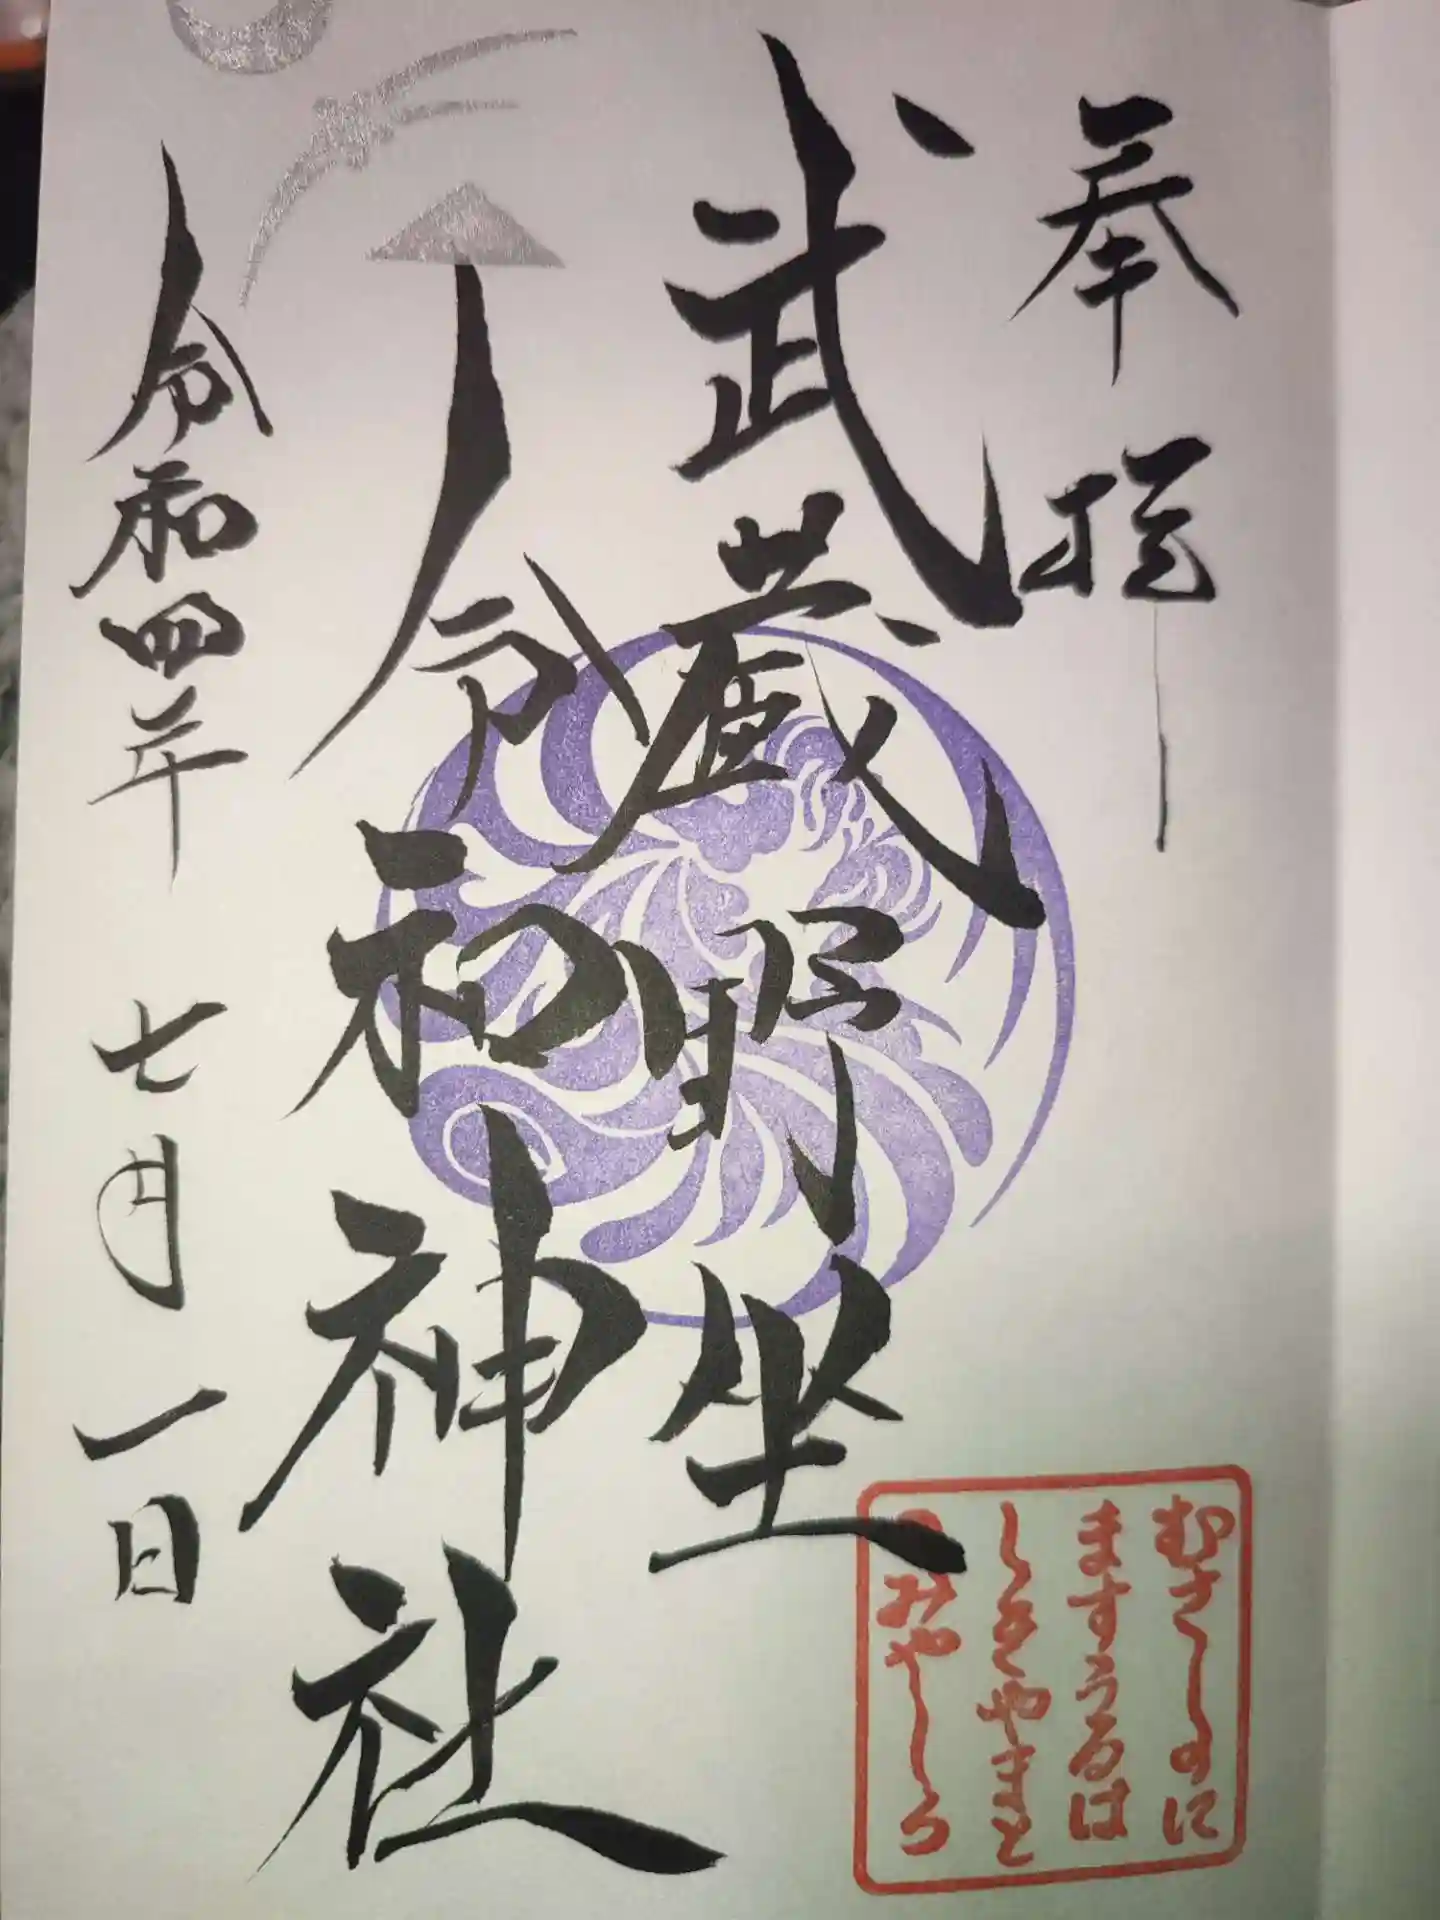 奉拝
武蔵野坐
令和神社
令和四年 七月 一日
むさしのに
ますうるは
しきやまと
のみやしろ